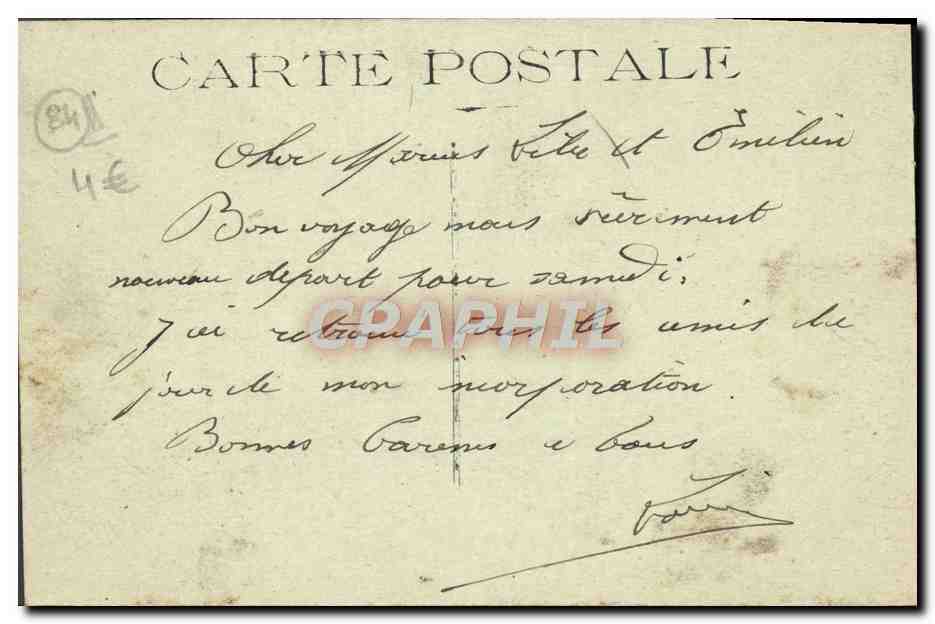 CARTE POSTALE
84
4€
Cher Marius et Émilien
Bon voyage mais sûrement
nouveau départ pour samedi.
CPAPHIL
J'ai retrouvé tous les amis de
jour de mon incorporation
Bonnes à tous